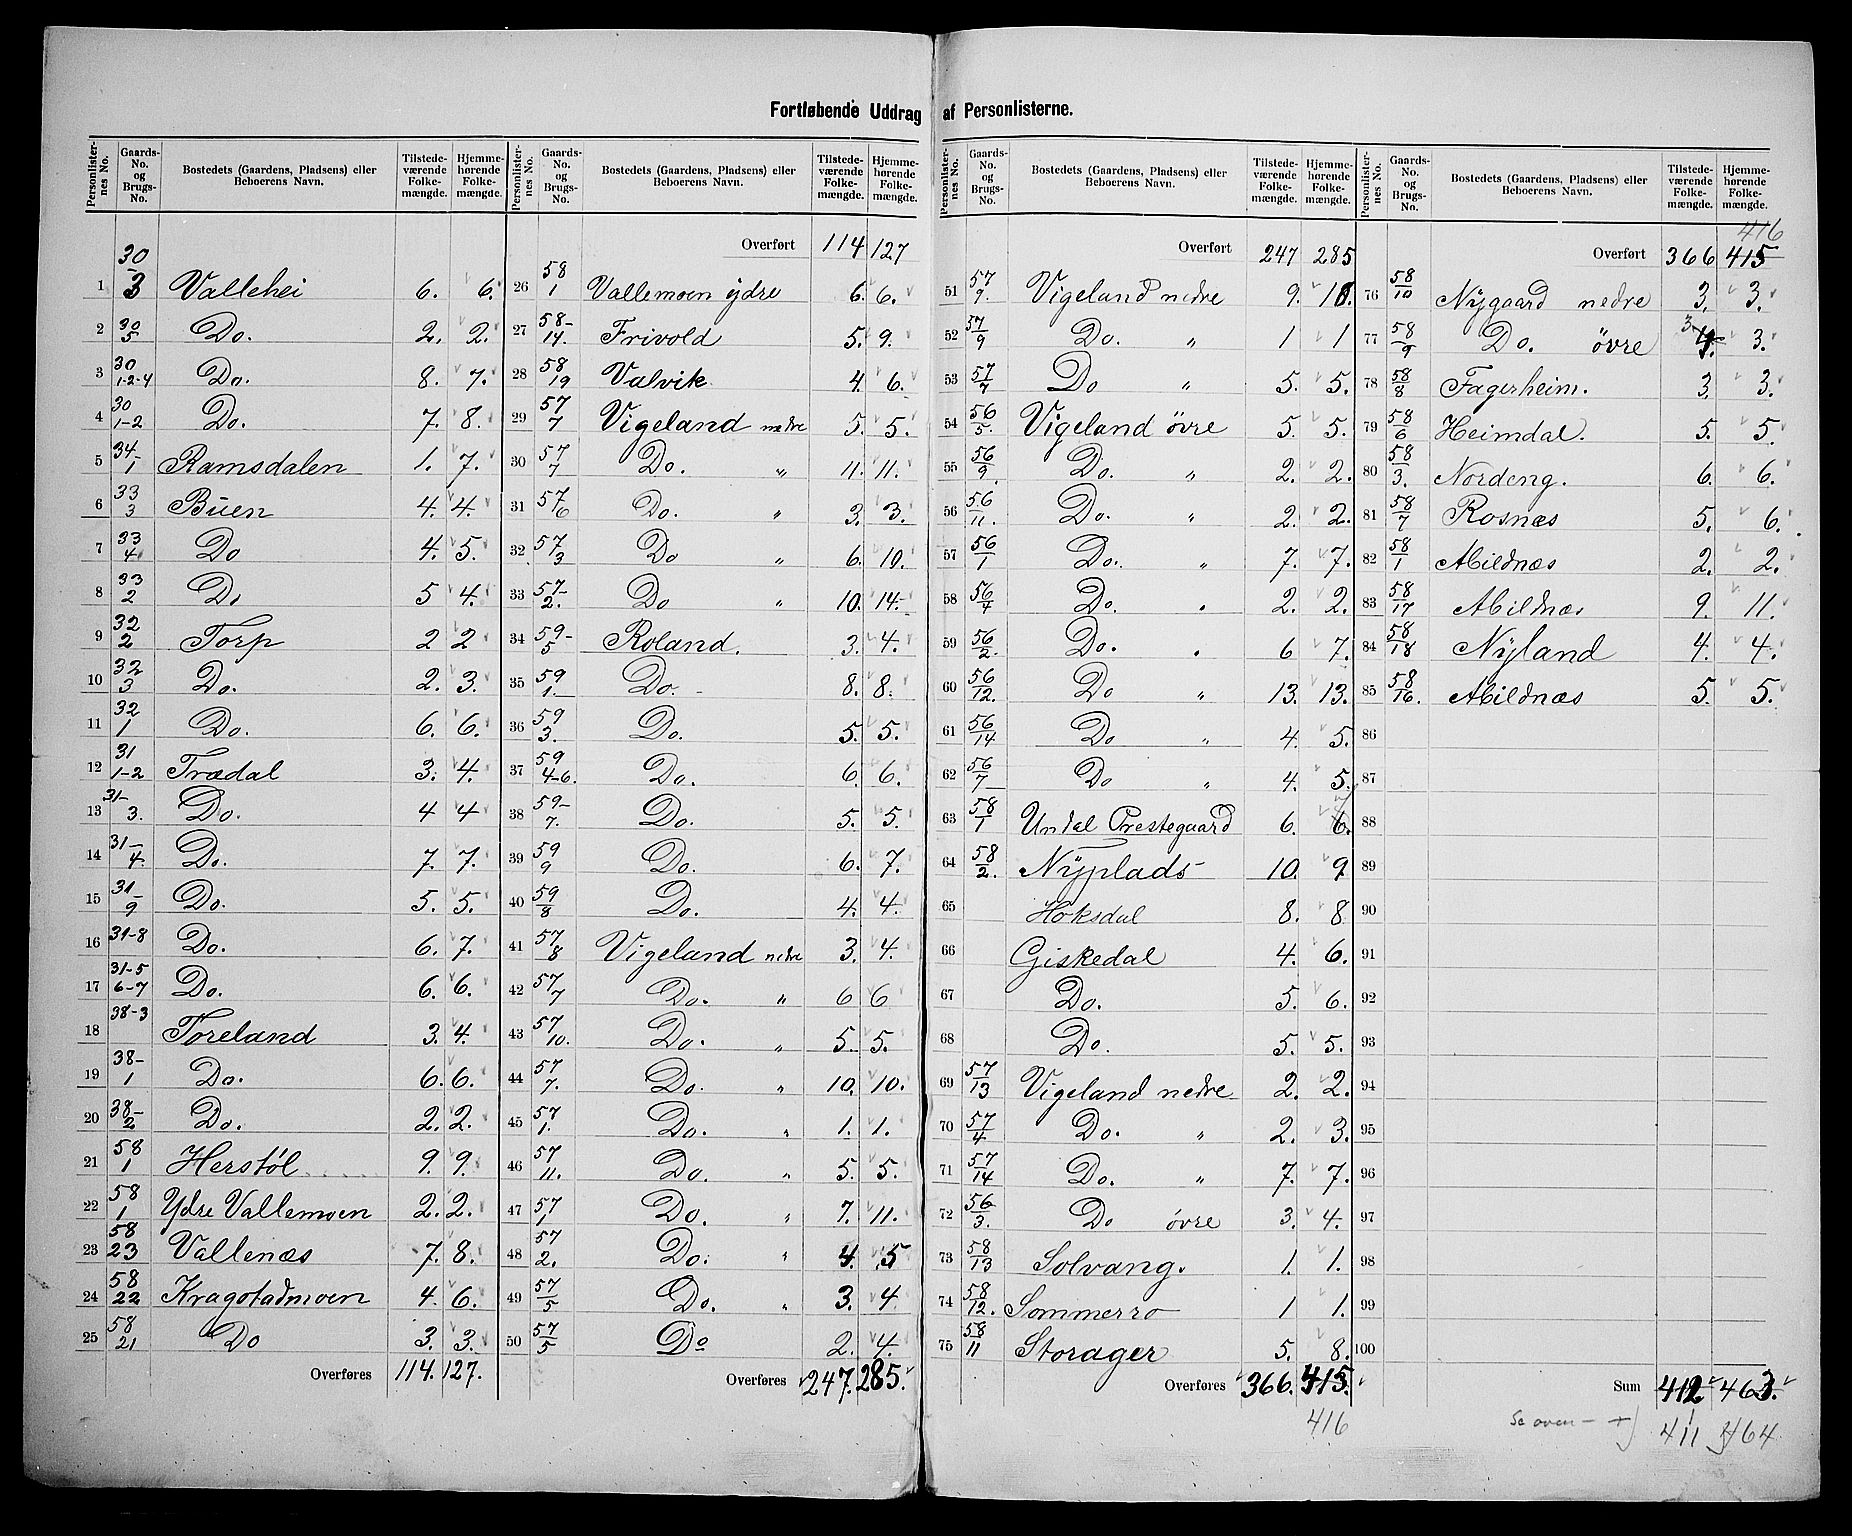 Fortløbende Uddrag af Personlisterne.
Personlister-nes No. | Gaards-No. og Brugs-No. | Bostedets (Gaardens, Pladsens) eller Beboerens Navn. | Tilstede-værende Folke-mængde. | Hjemme-hørende Folke-mængde.
1 30/3 Vallehei 6. 6.
2 30/5 Do. 2. 2.
3 30/1-2-4 Do. 8. 7.
4 30/1-2 Do. 7. 8.
5 34-/1 Ramsdalen 1. 7.
6 33/3 Buen 4. 4.
7 33/4 Do 4. 5.
8 33/2 Do 5 4.
9 32/2 Torp 2 2
10 32/3 Do. 2. 3.
11 32/1 Do. 6. 6.
12 31/1-2 Trædal 3. 4.
13 31-/3. Do. 4 4
14 31-/4. Do. 7. 7.
15 31-/9 Do. 5. 5.
16 31-8 Do. 6. 7.
17 31-5/6-7 Do. 6. 6.
18 38-3 Foreland 3. 4.
19 38-/1 Do. 6. 6.
20 38-/2 Do. 2. 2.
21 58/1 Herstøl 9. 9.
22 58/1 Ydre Vallemoen 2. 2.
23 58/23 Vallenæs 7. 8.
24 58/22 Kragstadmoen 4. 6.
25 58/21 Do 3. 3.
Overføres 114. 127.
Personlister-nes No. | Gaards-No. og Brugs-No. | Bostedets (Gaardens, Pladsens) eller Beboerens Navn. | Tilstede-værende Folke-mængde. | Hjemme-hørende Folke-mængde.
Overført 114 127
26 58/1 Vallemoen ydre 6. 6.
27 58-/14. Frivold 5. 9.
28 58/19 Valvik 4. 6.
29 57/7 Vigeland nedre 5. 5.
30 57/7 Do. " 11. 11.
31 57/6 Do. " 3. 3.
32 57/3 Do " 6. 10.
33 57-/2. Do " 10. 14.
34 59-/5 Roland. 3. 4.
35 59/1. Do. - 8. 8.
36 59/3. Do. 5. 5.
37 59/4-6. Do. 6. 6.
38 59-/7. Do. 5. 5.
39 59/9 Do. 6. 7.
40 59/8 Do. 4. 4.
41 57/8 Vigeland nedre 3. 4.
42 57/7 Do. " 6 6
43 57/10. Do. " 5. 5.
44 57/7. Do. " 10. 10.
45 57/1. Do. " 1. 1.
46 57/11. Do. " 5. 5.
47 57/1 Do. " 7. 11.
48 57/2. Do. " 4. 5
49 57/5 Do. " 3. 4
50 57/5 Do 2. 4.
Overføres 247. 285.
Personlister-nes No. | Gaards-No. og Brugs-No. | Bostedets (Gaardens, Pladsens) eller Beboerens Navn. | Tilstede-værende Folke-mængde. | Hjemme-hørende Folke-mængde.
Overført 247 285
51 57/9. Vigeland nedre 9. 10.
52 57/9 Do. " 1 1
53 57/7 Do " 5. 5.
54 56/5. Vigeland øvre 5. 5.
55 56/9. Do. " 2. 2.
56 56/11. Do. " 2. 2.
57 56/1 Do. " 7. 7.
58 56/4 Do. " 2. 2.
59 56/2. Do. " 6 7.
60 56/12. Do " 13. 13.
61 56/14 Do " 4. 5.
62 56/7 Do " 4. 5.
63 58/1 Undal Prestegaard 6. 6.
64 58/2. Nyplads 10. 9
65 Høksdal 8. 8
66 Giskedal 4. 6.
67 Do. 5. 6.
68 Do. 5. 5.
69 57/13 Vigeland nedre 2. 2.
70 57/4 Do. " 2. 3.
71 57/14 Do. " 7. 7.
72 56/3. Do øvre 3. 4.
73 58/13 Solvang. 1. 1.
74 58/12. Sommerro 1 1.
75 58/11 Storager 5. 8.
Overføres 366. 415.
416
Personlister-nes No. | Gaards-No. og Brugs-No. | Bostedets (Gaardens, Pladsens) eller Beboerens Navn. | Tilstede-værende Folke-mængde. | Hjemme-hørende Folke-mængde.
416
Overført 366 415
76 58/10 Nygaard nedre 3. 3.
77 58/9 Do. øvre 3 4. 3.
78 58/8 Fagerheim. 3. 3.
79 58/6 Heimdal. 5. 5.
80 58/3. Nordeng. 6. 6.
81 58/7 Rosnæs 5. 6.
82 58/1 Abildnæs 2. 2.
83 58/17 Abildnæs 9. 11.
84 58/18 Nyland 4. 4.
85 58/16. Abildnæs 5. 5.
86
87
88
89
90
91
92
93
94
95
96
97
98
99
100
Sum 412 463.
Se oven 411 464